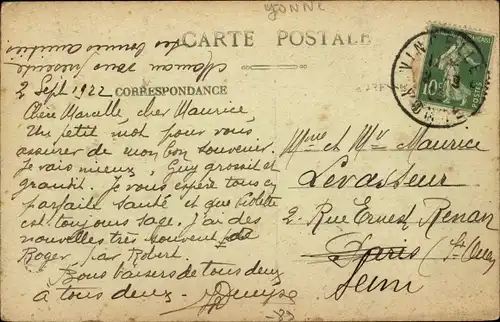 YONNE
CARTE POSTALE
CORRESPONDANCE
Maman vous présente
ses bonnes amitiés
2 Sept 1922
Chère Marcelle, cher Maurice,
Un petit mot pour vous
assurer de mon bon souvenir.
Je vais mieux, Guy grossit et
grandit. Je vous espère tous en
parfaite santé et que Colette
est toujours sage. J'ai des
nouvelles très souvent de
Roger, par Robert.
Bons baisers de tous deux
à tous deux
Denyse
Mme et Mr Maurice
Levasseur
2. Rue Ernest Renan
Paris (St Ouen)
Seine
10c
POSTES